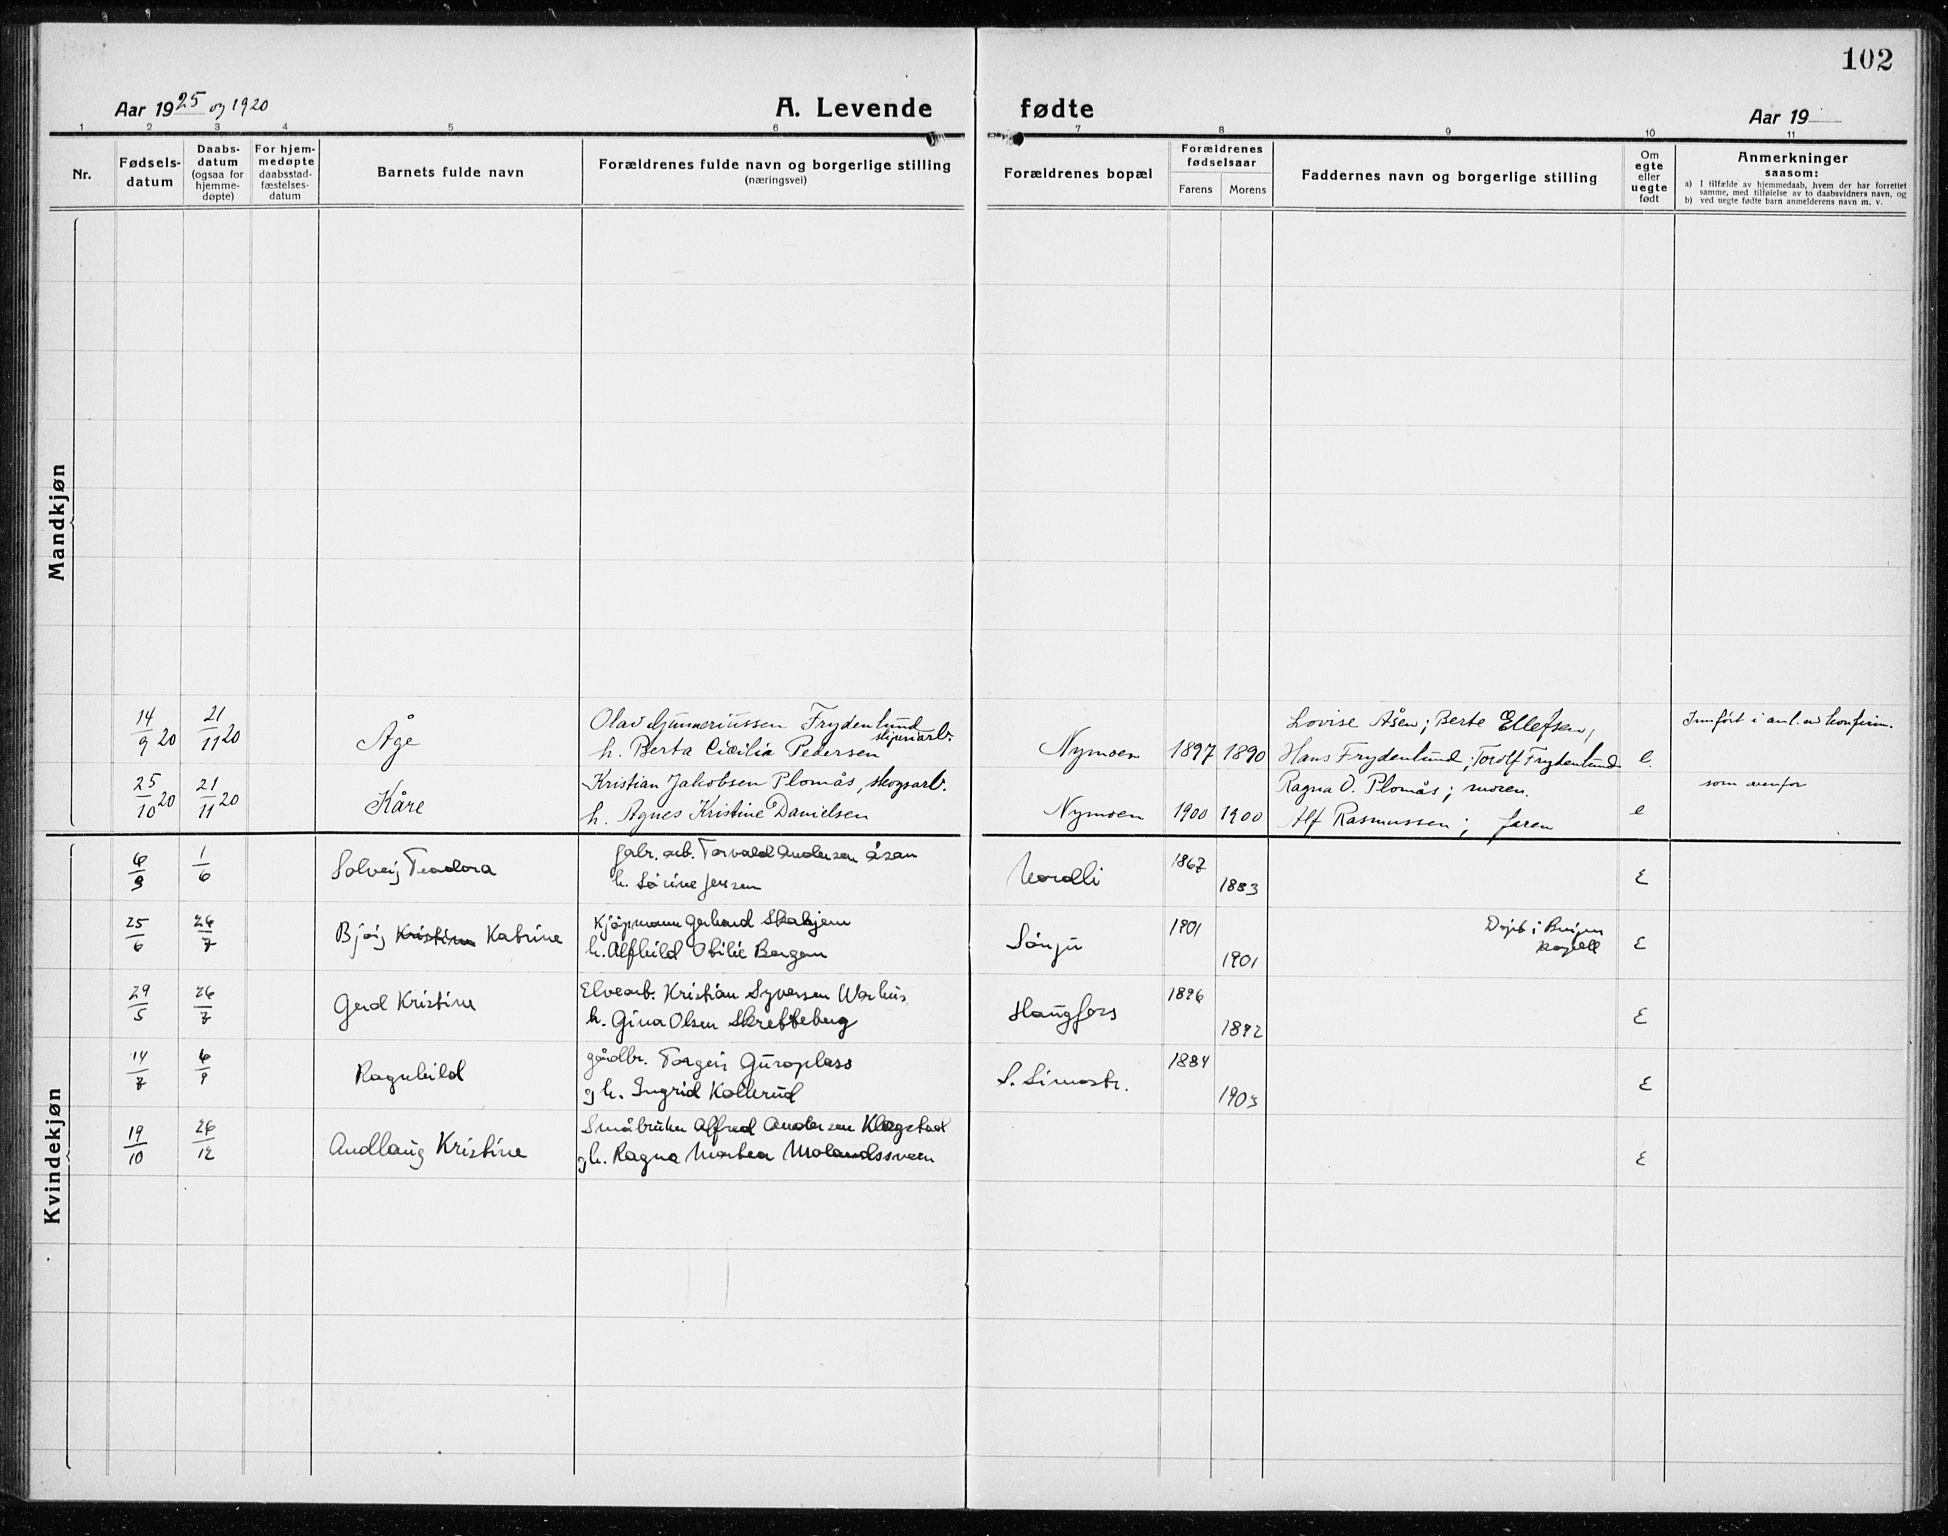 102
Aar 1925 og 1920
A. Levende fødte
Aar 19
1 2 3 4 5 6 7 8 9 10 11
Nr.
Fødsels-
datum
Daabs-
datum
(ogsaa for
hjemme-
døpte)
For hjem-
medøpte
daabsstad-
fæstelses-
datum
Barnets fulde navn
Forældrenes fulde navn og borgerlige stilling
(næringsvei)
Forældrenes bopæl
Forældrenes
fødselsaar
Farens Morens
Faddernes navn og borgerlige stilling
Om
egte
eller
uegte
født
Anmerkninger
saasom:
a) I tilfælde av hjemmedaab, hvem der har forrettet
samme, med tilføielse av to daabsvidners navn, og
b) ved uegte fødte barn anmelderens navn m. v.
Mandkjøn
14/9 20 21/11 20 Åge
Olav Gunneriussen Frydenlund
h. Berta Cicilia Pedersen
Nymoen 1897 1890
Lovise Åsen; Berte Ellefsen,
Hans Frydenlund; Torolf Frydenlund
e.
Innført i anl. av konfirm.
25/10 20 21/11 20 Kåre
Kristian Jakobsen Plomås, skogsarb.
h. Agnes Kristine Danielsen
Nymoen 1900 1900
Ragna O. Plomås; moren.
Alf Rasmussen; faren
e
som ovenfor
Kvindekjøn
6/3 1/6 Solveig Teodora
fabr. arb. Torvald Andersen Åsan
h. Sörine Jensen
Nordli 1867 1883
E
25/6 26/7 Bjørg Kristine Katrine
Kjøpmann Gerhard Skahjem
h. Alfhild Otilie Bergan
1901 1901
Døpt i
kapell
E
29/5 26/7 Gerd Kristine
Elvearb. Kristian Syversen Warhus
h. Gina Olsen Skretteberg
Haugfoss 1896 1892
E
14/7 6/9 Ragnhild
gårdbr. Torgeir Guroplass
g h. Ingrid Kollerud
1884 1903
E
19/10 26/12 Audlaug Kristine
Småbruker Alfred Andersen Klagstad
g h. Ragna Marbea Molandssveen
E